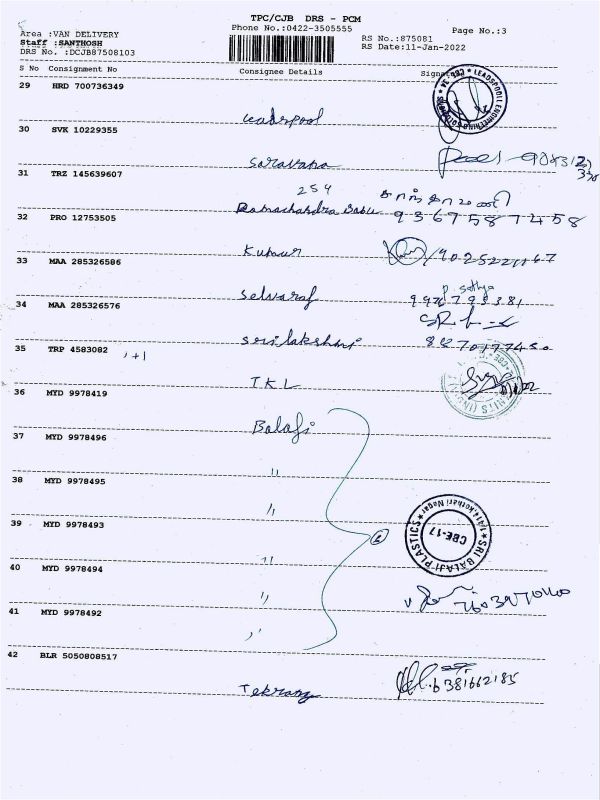 TPC/CJB DRS - PCM
Area :VAN DELIVERY
Phone No.:0422-3505555
Page No.:3
Staff :SANTHOSH
RS No.:875081
DRS No. :DCJB87508103
RS Date:11-Jan-2022
S No Consignment No Consignee Details Signature
29 HRD 700736349
Leadspool
30 SVK 10229355
Saravana
31 TRZ 145639607
254
Ramachandra Babu 9367587458
32 PRO 12753505
Kumar
33 MAA 285326586
Selvaraj
34 MAA 285326576
Srilakshmi
35 TRP 4583082 , +1
TKL
36 MYD 9978419
Balaji
37 MYD 9978496
"
38 MYD 9978495
"
39 MYD 9978493
"
SRI BALAJI PLASTICS
CBE-17
40 MYD 9978494
"
41 MYD 9978492
"
42 BLR 5050808517
6381662185